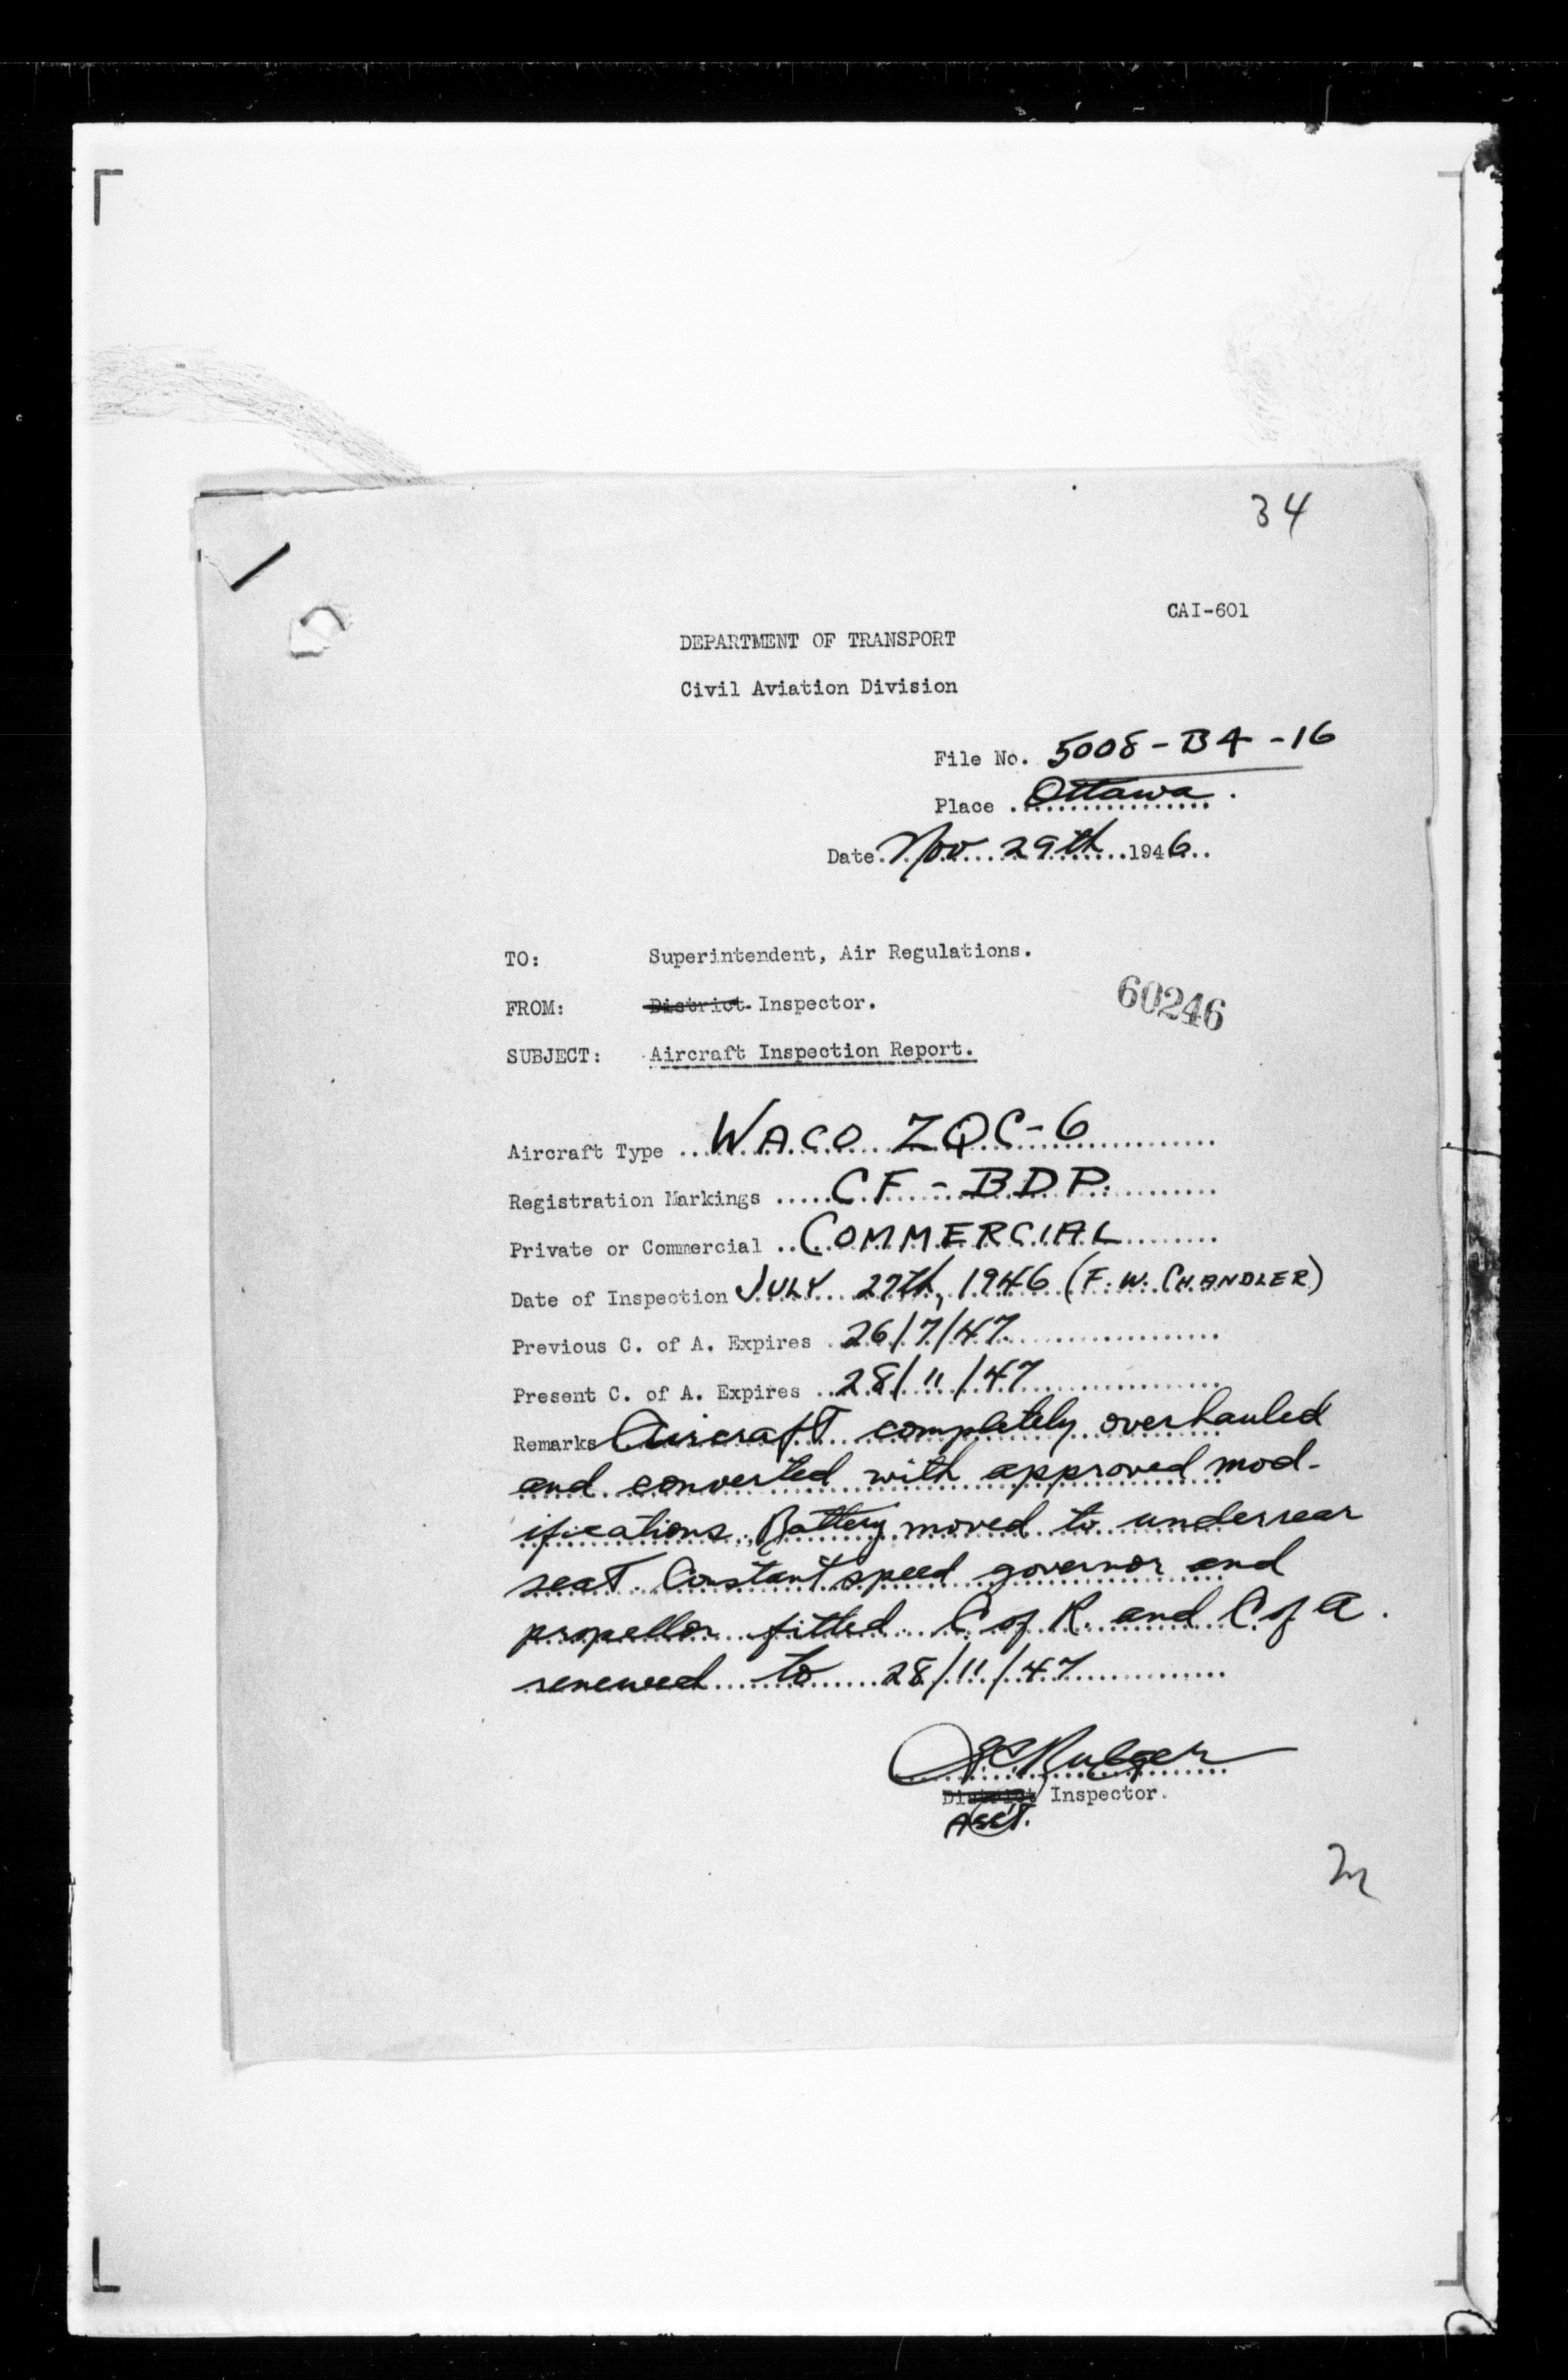 34
CAI-601
DEPARTMENT OF TRANSPORT
Civil Aviation Division
File No. 5008-B4-16
Place Ottawa.
Date Nov 29th 1946
TO: Superintendent, Air Regulations.
FROM: District Inspector.
60246
SUBJECT: Aircraft Inspection Report.
Aircraft Type WACO ZQC-6
Registration Markings CF-BDP.
Private or Commercial COMMERCIAL
Date of Inspection JULY 27th, 1946 (F.W. CHANDLER)
Previous C. of A. Expires 26/7/47
Present C. of A. Expires 28/11/47
Remarks Aircraft completely overhauled
and converted with approved mod-
ifications. Battery moved to under rear
seat. Constant speed governor and
propellor fitted. C of R. and C of A.
renewed to 28/11/47
District Inspector.
Ass't.